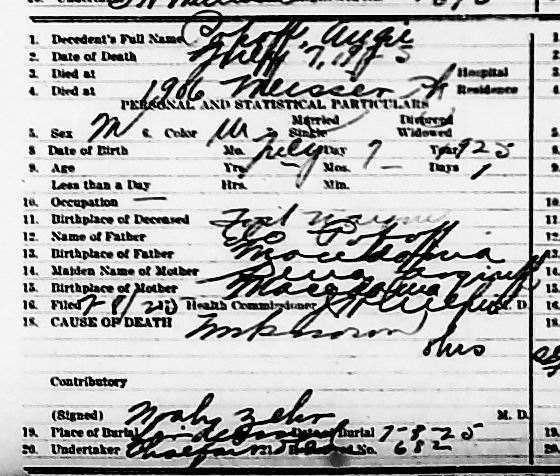 1. Decedent's Full Name Pokoff, Augie
2. Date of Death July 7, 1925
3. Died at Hospital
4. Died at 1906 Meisser Residence
PERSONAL AND STATISTICAL PARTICULARS
Married Divorced
5. Sex M 6. Color W 7. Single Widowed
8 Date of Birth Mo. July Day 7 Year 1925
9. Age Yrs. — Mos. — Days 1
Less than a Day Hrs. Min.
10. Occupation —
11. Birthplace of Deceased Fort Wayne
12. Name of Father Pokoff
13. Birthplace of Father Macedonia
14. Maiden Name of Mother
15. Birthplace of Mother Macedonia
16. Filed 7 8/25 Health Commissioner M. D.
18. CAUSE OF DEATH
Contributory
(Signed) Noah Zehr M. D.
19. Place of Burial Lindenwood Date of Burial 7-8-25
20. Undertaker 21. No. 682